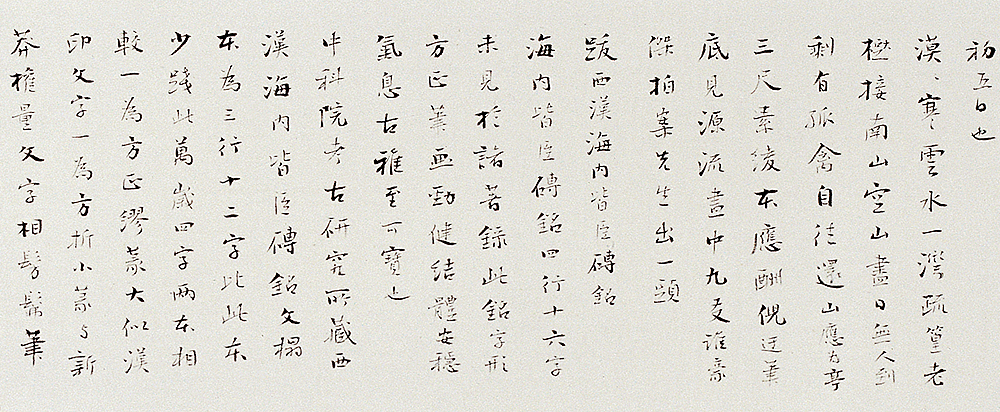 初五日也
漠〻寒雲水一灣疏篁老
樾接南山空山盡日無人到
剩有孤禽自往還山應為
三尺素綾本應酬倪迂筆
底見源流畫中九友誰豪
傑拍案先生出一頭
跋西漢海內皆臣磚銘
海內皆臣磚銘四行十六字
未見於諸著錄此銘字形
方正筆畫勁健結體安穩
氣息古雅至可寶也
中科院考古研究所藏西
漢海內皆臣磚銘文榻
本為三行十二字比此本
少踐此萬歲四字兩本相
較一為方正繆篆大似漢
印文字一為方折小篆与新
莽權量文字相髣髴筆